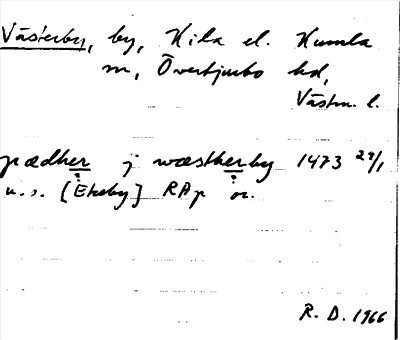 Västerby, by, Kila el. Kumla
sn, Övertjurbo hd,
Västm. l.
pædher j wæstherby 1473 29/1
u.s. [Ekeby] RAp or.
R. D. 1966